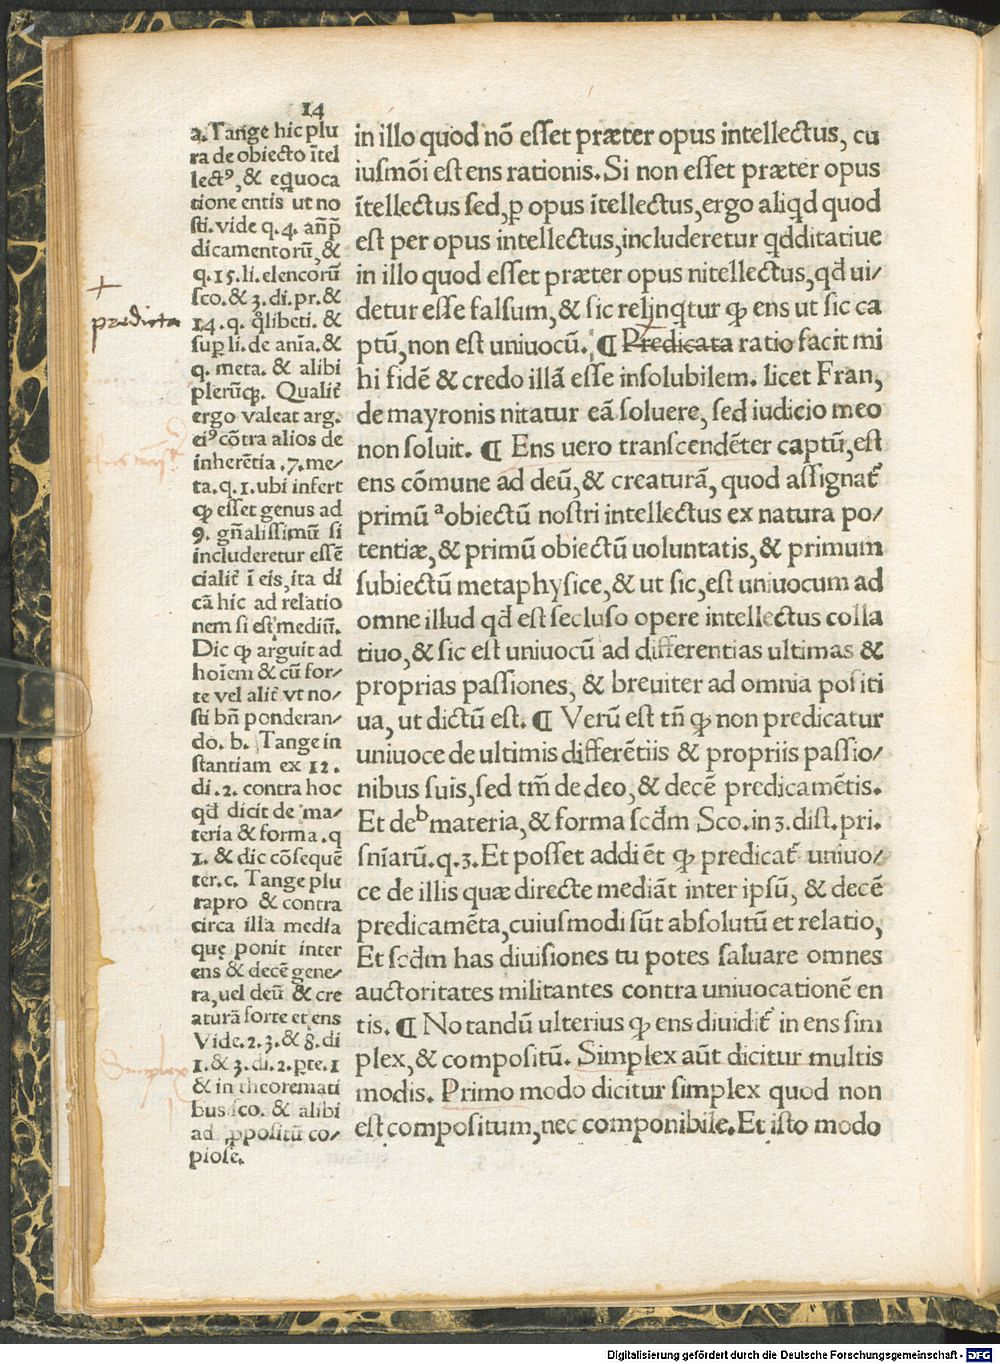 14
a. Tange hic plu
ra de obiecto ītel
lectꝰ, & equoca
tione entis ut no
sti. vide q. 4. añp̄
dicamentorū, &
q. 15. li. elencorū
sco. & 3. di. pr. &
14. q. q̄libeti. &
sup̱ li. de anīa. &
q. meta. & alibi
plerūqꝫ. Qualit᷑
ergo valeat arg.
eiꝰ cōtra alios de
inherētia .7. me/
ta. q. 1. ubi infert
ꝙ esset genus ad
9. gñalissimū si
includeretur essē
cialit᷑ ī eis, ita di
cā hic ad relatio
nem si est mediū.
Dic ꝙ arguit ad
hoīem & cū for/
te vel alit᷑ vt no/
sti bñ ponderan/
do. b. Tange in
stantiam ex 12.
di. 2. contra hoc
qd̄ dicit de ma/
teria & forma. q
1. & dic cōsequē
ter. c. Tange plu
ra pro & contra
circa illa media
quę ponit inter
ens & decē gene/
ra, uel deū & cre
aturā forte et ens
Vide. 2. 3. & 8. di
1. & 3. di. 2. ꝑte. 1
& in theoremati
bus sco. & alibi
ad ꝓpositū co/
piose.
+
predicta
Simplex
in illo quod nō esset præter opus intellectus, cu
iusmōi est ens rationis. Si non esset præter opus
ītellectus sed, ꝑ opus ītellectus, ergo aliqd quod
est per opus intellectus, includeretur qdditatiue
in illo quod esset præter opus nitellectus, qd̄ ui/
detur esse falsum, & sic relinqtur ꝙ ens ut sic ca
ptū, non est uniuocū. ¶ Predicata ratio facit mi
hi fidē & credo illā esse insolubilem. licet Fran,
de mayronis nitatur eā soluere, sed iudicio meo
non soluit. ¶ Ens uero transcendēter captū, est
ens cōmune ad deū, & creaturā, quod assignat᷑
primū ᵃobiectū nostri intellectus ex natura po/
tentiæ, & primū obiectū uoluntatis, & primum
subiectū metaphysice, & ut sic, est uniuocum ad
omne illud qd̄ est secluso opere intellectus colla
tiuo, & sic est uniuocū ad differentias ultimas &
proprias passiones, & breuiter ad omnia positi
ua, ut dictū est. ¶ Verū est tñ ꝙ non predicatur
uniuoce de ultimis differētiis & propriis passio/
nibus suis, sed tm̄ de deo, & decē predicamētis.
Et deᵇ materia, & forma scdm̄ Sco. in 3. dist. pri.
sn̄iarū. q. 3. Et posset addi ēt ꝙ predicat᷑ uniuo/
ce de illis quæ directe mediāt inter ipsū, & decē
predicamēta, cuiusmodi sūt absolutū et relatio,
Et scdm̄ has diuisiones tu potes saluare omnes
auctoritates militantes contra uniuocationē en
tis. ¶ Notandū ulterius ꝙ ens diuidit᷑ in ens sim
plex, & compositū. Simplex aūt dicitur multis
modis. Primo modo dicitur simplex quod non
est compositum, nec componibile. Et isto modo
Digitalisierung gefördert durch die Deutsche Forschungsgemeinschaft - DFG